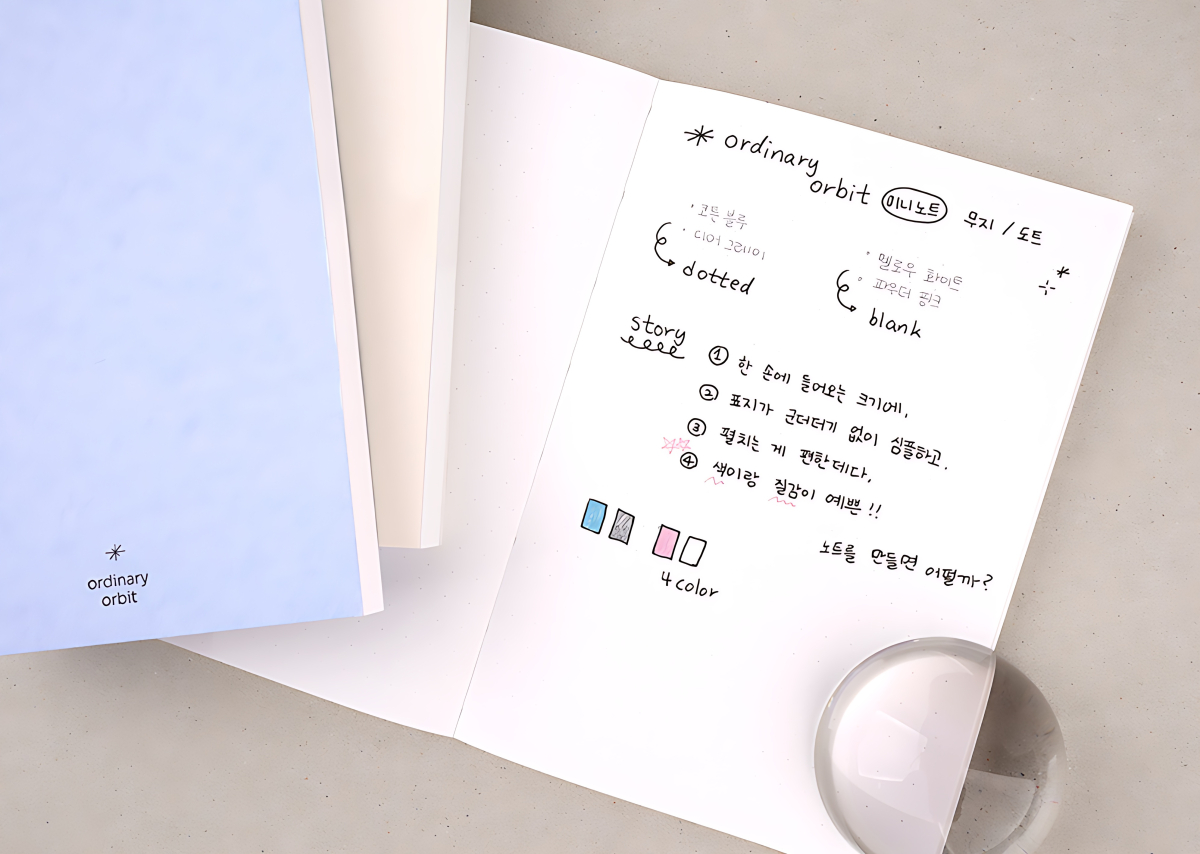 ordinary
orbit
* ordinary
orbit 미니노트 무지 / 도트
· 코튼 블루
· 디어 그레이
dotted
· 멜로우 화이트
· 파우더 핑크
blank
story
① 한 손에 들어오는 크기에,
② 표지가 군더더기 없이 심플하고.
③ 펼치는 게 편한데다,
④ 색이랑 질감이 예쁜!!
노트를 만들면 어떨까?
4 color